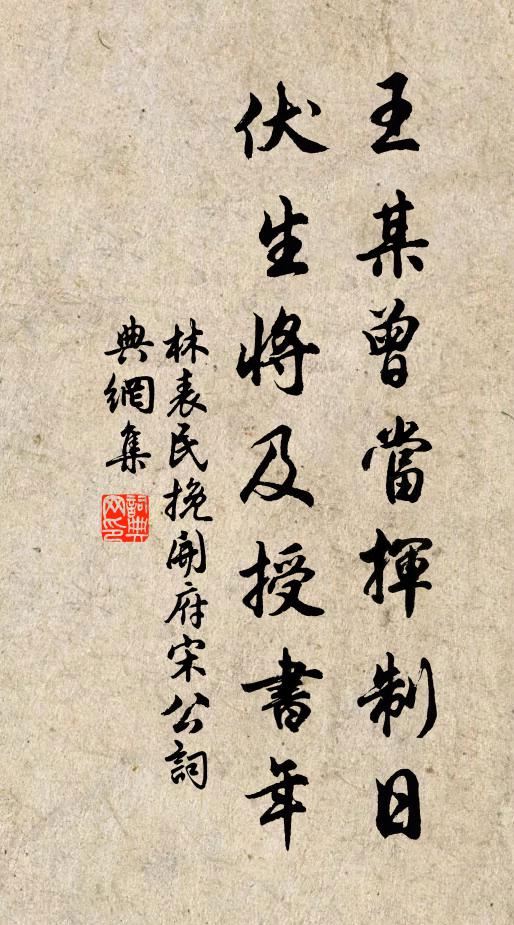 王某曾當揮制日
伏生將及授書年
林表民挽開府宋公詞
典網集
詞典网印